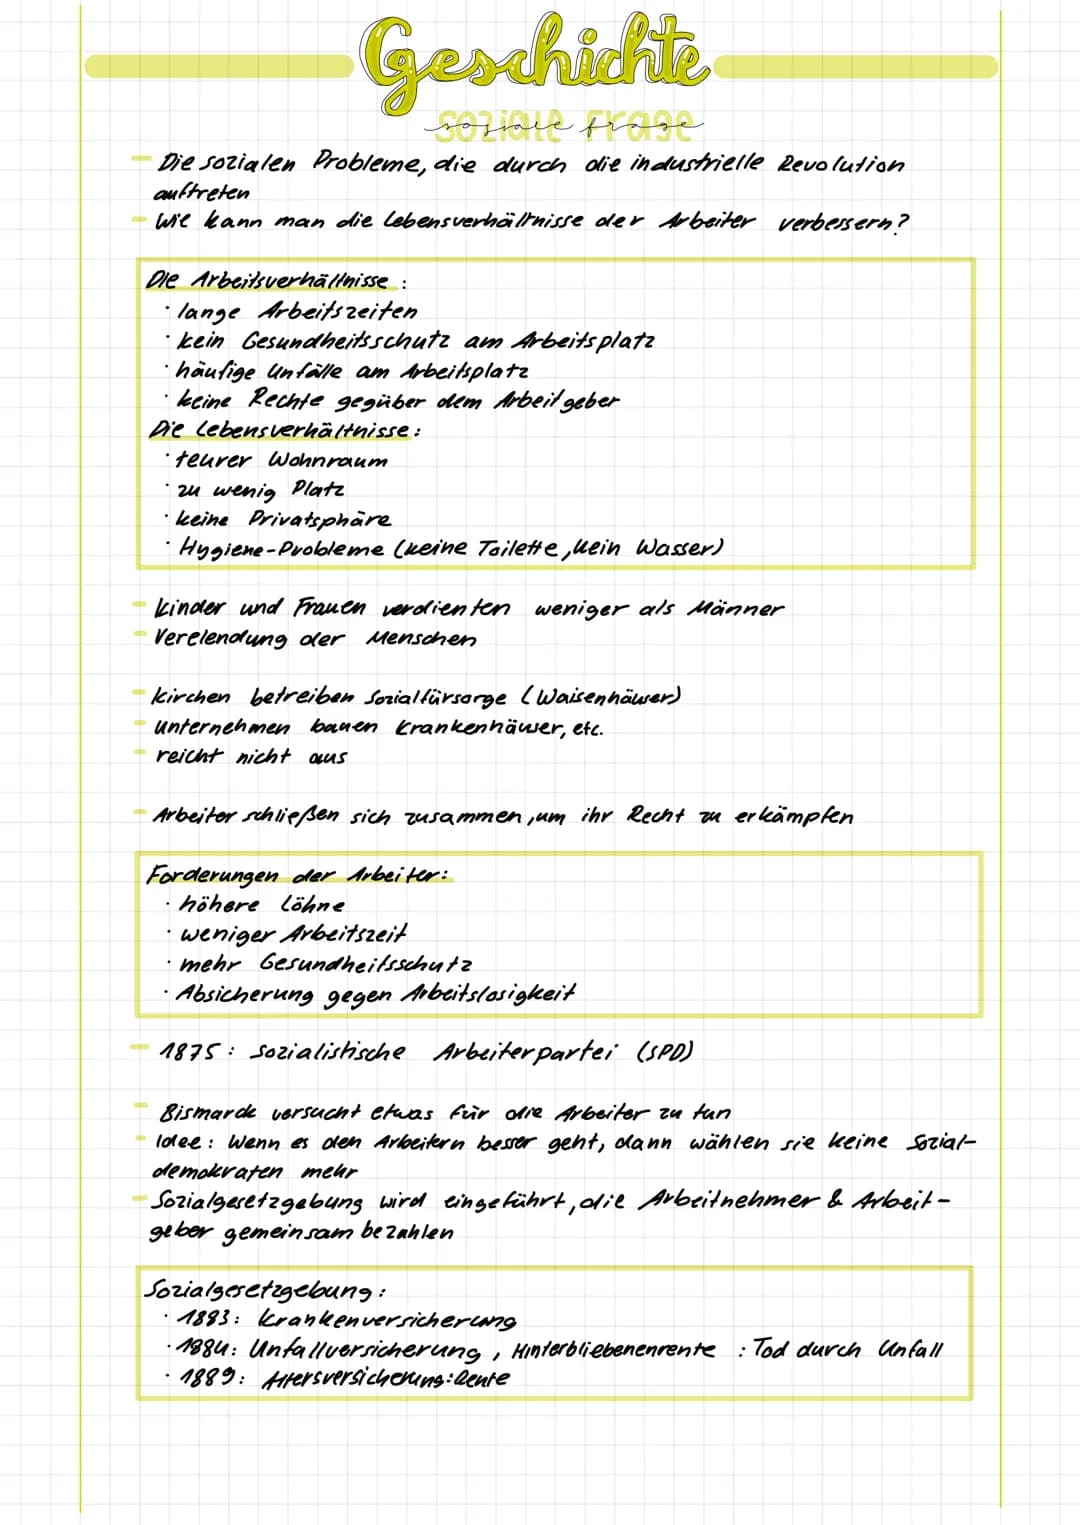 Geschichte
soziale Frage
- Die sozialen Probleme, die durch die industrielle Revolution
auftreten
- Wie kann man die Lebensverhältnisse der Arbeiter verbessern?
Die Arbeitsverhältnisse:
· lange Arbeitszeiten
· kein Gesundheitsschutz am Arbeitsplatz
· häufige Unfälle am Arbeitsplatz
· keine Rechte gegüber dem Arbeitgeber
Die Lebensverhältnisse:
· teurer Wohnraum
· zu wenig Platz
· keine Privatsphäre
· Hygiene-Probleme (keine Toilette, kein Wasser)
- Kinder und Frauen verdienten weniger als Männer
- Verelendung der Menschen
- Kirchen betreiben Sozialfürsorge (Waisenhäuser)
- Unternehmen bauen Krankenhäuser, etc.
- reicht nicht aus
- Arbeiter schließen sich zusammen, um ihr Recht zu erkämpfen
Forderungen der Arbeiter:
· höhere Löhne
· weniger Arbeitszeit
· mehr Gesundheitsschutz
· Absicherung gegen Arbeitslosigkeit
- 1875: Sozialistische Arbeiterpartei (SPD)
- Bismarck versucht etwas für die Arbeiter zu tun
- Idee: Wenn es den Arbeitern besser geht, dann wählen sie keine Sozial-
demokraten mehr
- Sozialgesetzgebung wird eingeführt, die Arbeitnehmer & Arbeit-
geber gemeinsam bezahlen
Sozialgesetzgebung:
· 1883: Krankenversicherung
· 1884: Unfallversicherung, Hinterbliebenenrente : Tod durch Unfall
· 1889: Altersversicherung: Rente